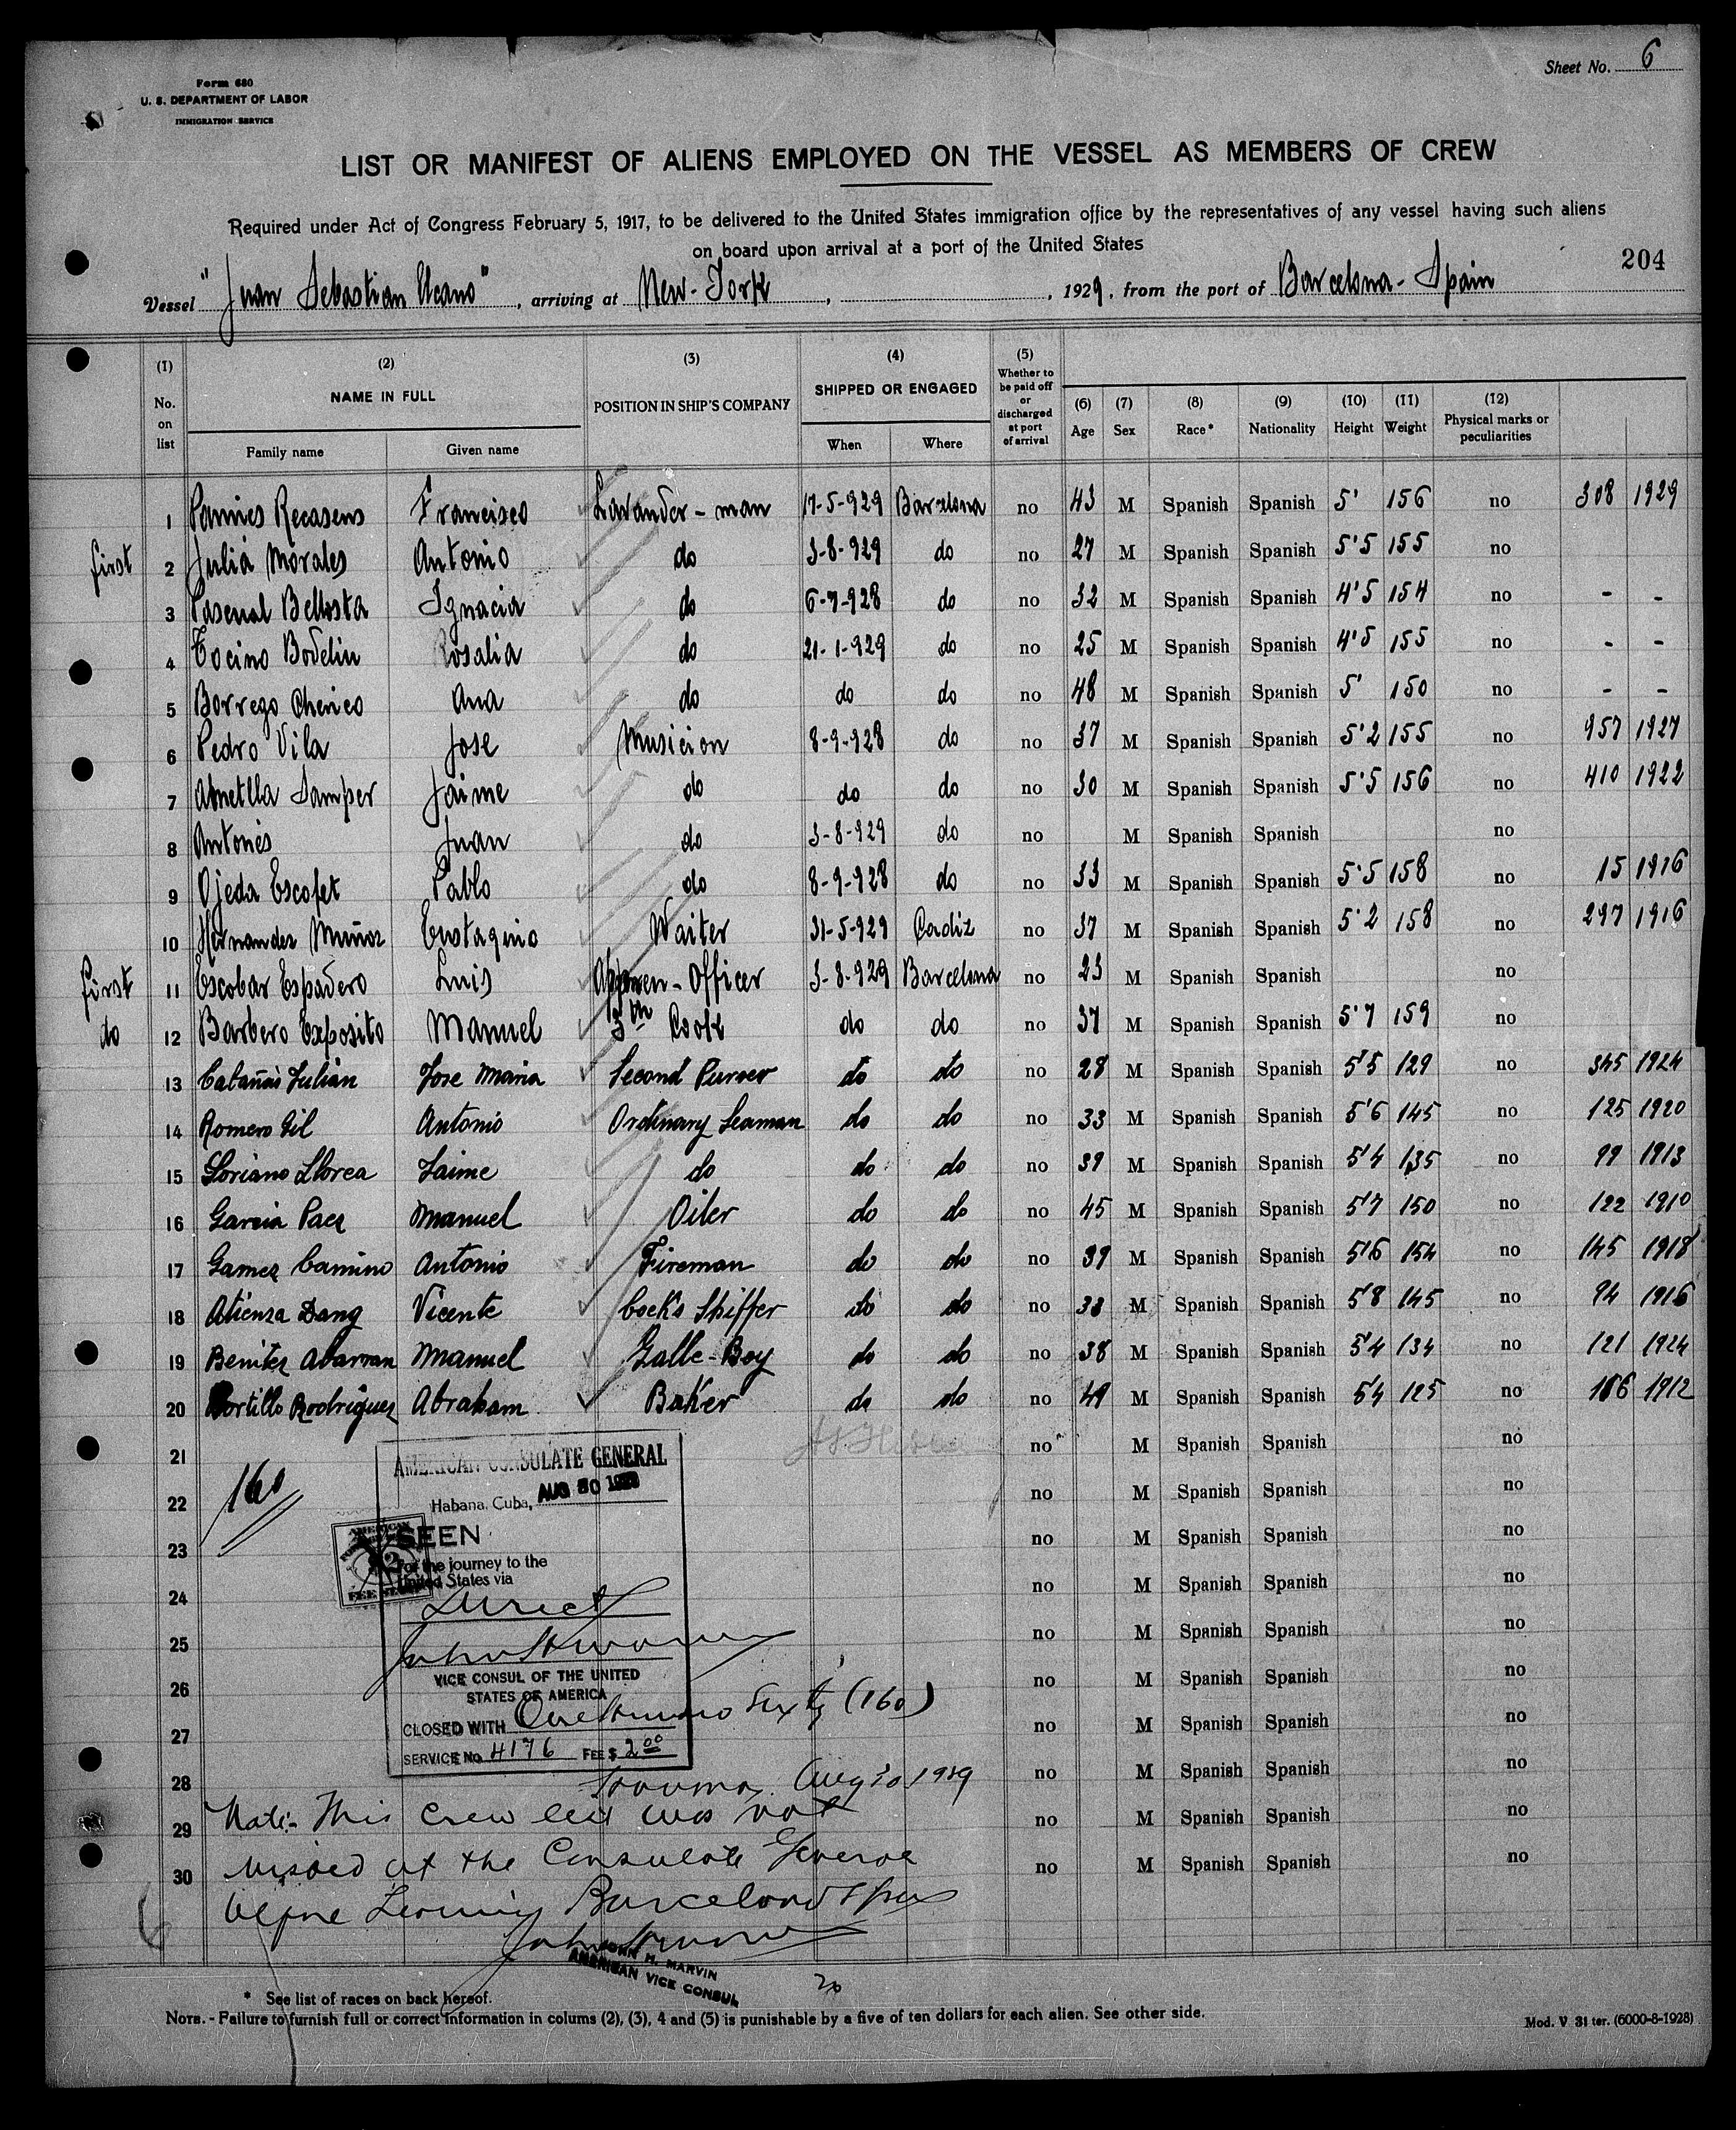 Sheet No. 6
Form 680
U. S. DEPARTMENT OF LABOR
IMMIGRATION SERVICE
LIST OR MANIFEST OF ALIENS EMPLOYED ON THE VESSEL AS MEMBERS OF CREW
Required under Act of Congress February 5, 1917, to be delivered to the United States immigration office by the representatives of any vessel having such aliens
on board upon arrival at a port of the United States
204
Vessel "Juan Sebastian Elcano", arriving at New-York, , 1929, from the port of Barcelona-Spain
(1) No. on list
(2) NAME IN FULL Family name Given name
(3) POSITION IN SHIP'S COMPANY
(4) SHIPPED OR ENGAGED When Where
(5) Whether to be paid off or discharged at port of arrival
(6) Age (7) Sex (8) Race* (9) Nationality (10) Height (11) Weight (12) Physical marks or peculiarities
1 Recasens Francisco Lavander-man 17-5-929 Barcelona no 43 M Spanish Spanish 5' 156 no 308 1929
first 2 Juliá Morales Antonio do 3-8-929 do no 27 M Spanish Spanish 5'5 155 no
3 Pascual Bellosta Ignacia do 6-7-928 do no 32 M Spanish Spanish 4'5 154 no - -
4 Tocino Bodelin Rosalia do 21-1-929 do no 25 M Spanish Spanish 4'5 155 no - -
5 Borrego Ana do do do no 48 M Spanish Spanish 5' 150 no - -
6 Pedro Vila Jose Musicion 8-9-928 do no 37 M Spanish Spanish 5'2 155 no 957 1927
7 Samper Jaime do do do no 30 M Spanish Spanish 5'5 156 no 410 1922
8 Antones Juan do 3-8-929 do no M Spanish Spanish no
9 Ojeda Escofet Pablo do 8-9-928 do no 33 M Spanish Spanish 5'5 158 no 15 1916
10 Hernandez Muñoz Eustaquio Waiter 31-5-929 Cadiz no 37 M Spanish Spanish 5'2 158 no 297 1916
first 11 Escobar Espadero Luis Officer 3-8-929 Barcelona no 23 M Spanish Spanish no
do 12 Barbero Exposito Manuel 3th Cook do do no 37 M Spanish Spanish 5'7 159 no
13 Cabañas Julian Jose Maria Second Purser do do no 28 M Spanish Spanish 5'5 129 no 345 1924
14 Romero Gil Antonio Ordinary Seaman do do no 33 M Spanish Spanish 5'6 145 no 125 1920
15 Soriano Llorca Jaime do do do no 39 M Spanish Spanish 5'4 135 no 99 1913
16 Garcia Paez Manuel Oiler do do no 45 M Spanish Spanish 5'7 150 no 122 1910
17 Gamez Camino Antonio Fireman do do no 39 M Spanish Spanish 5'6 154 no 145 1918
18 Atienza Dang Vicente Cock's Shiffer do do no 33 M Spanish Spanish 5'8 145 no 94 1916
19 Benitez Manuel Galle-Boy do do no 38 M Spanish Spanish 5'4 134 no 121 1924
20 Portillo Rodriguez Abraham Baker do do no 49 M Spanish Spanish 5'4 125 no 166 1912
21 no M Spanish Spanish no
22 no M Spanish Spanish no
23 no M Spanish Spanish no
24 no M Spanish Spanish no
25 no M Spanish Spanish no
26 no M Spanish Spanish no
27 no M Spanish Spanish no
28 no M Spanish Spanish no
29 no M Spanish Spanish no
30 no M Spanish Spanish no
160
AMERICAN CONSULATE GENERAL
Habana, Cuba, AUG 30 1929
SEEN
For the journey to the
United States via
Direct
VICE CONSUL OF THE UNITED
STATES OF AMERICA
CLOSED WITH One Hundred Sixty (160)
SERVICE No. 4176 FEE $ 2.00
Havana, Aug 30 1929
Note:- This crew list was not
visaed at the Consulate General
before leaving Barcelona Spain
JOHN H. MARVIN
AMERICAN VICE CONSUL
* See list of races on back hereof.
NOTE. - Failure to furnish full or correct information in colums (2), (3), 4 and (5) is punishable by a five of ten dollars for each alien. See other side.
Mod. V 31 ter. (6000-8-1928)